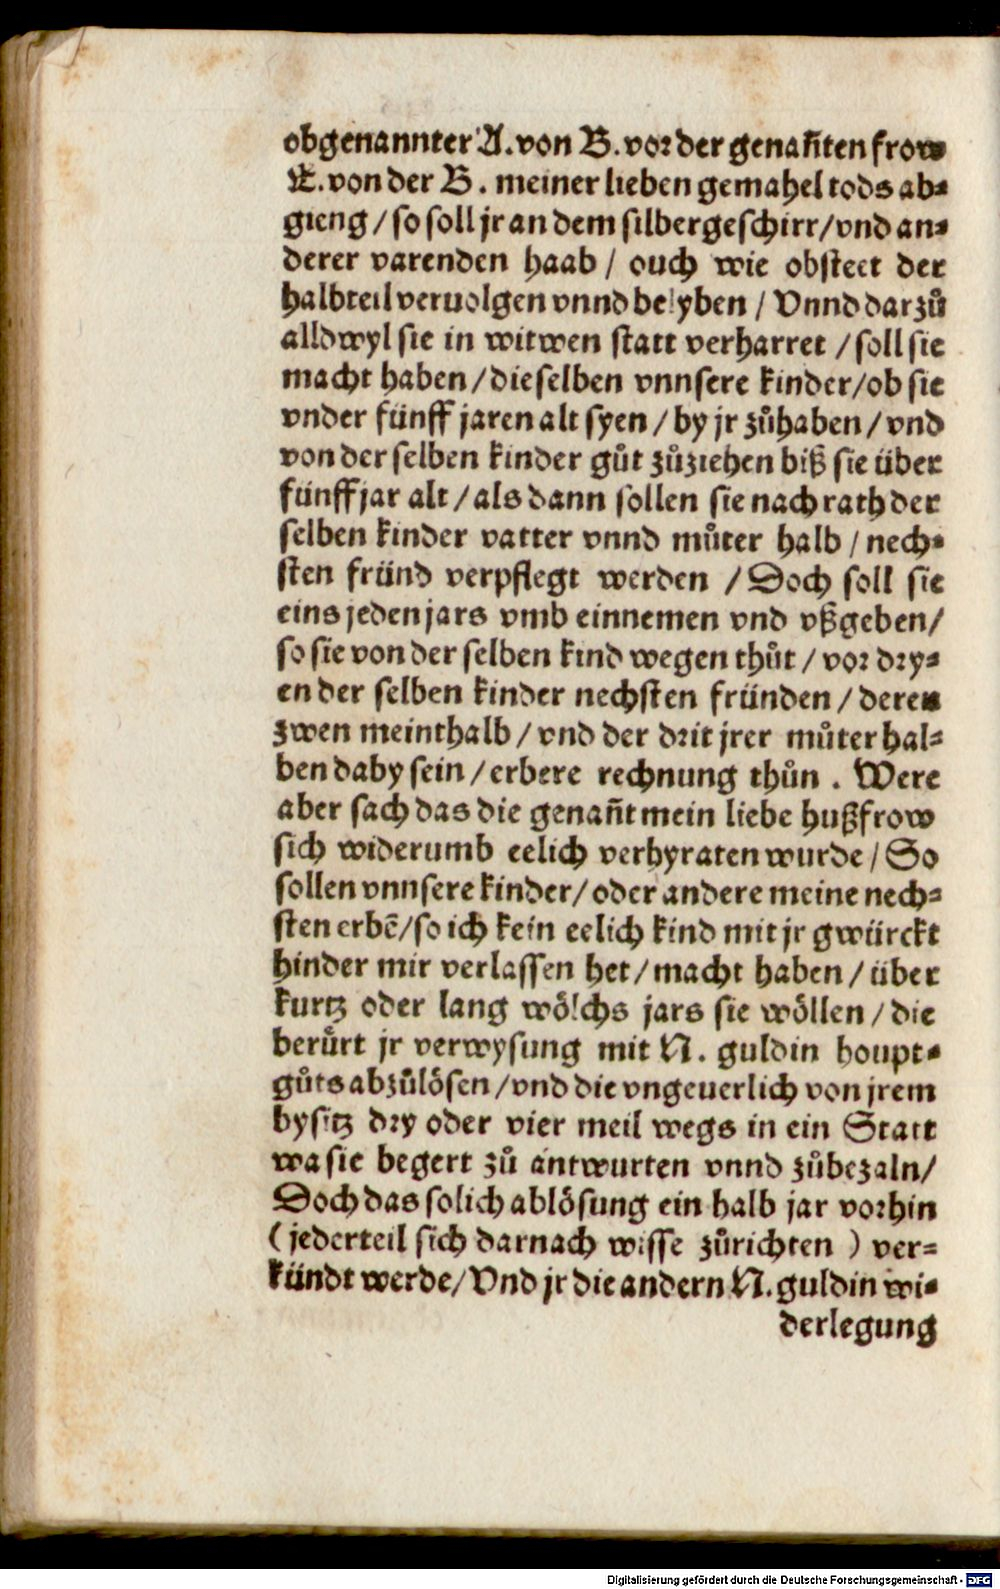 obgenannter A. von B. vor der genañten frow
E. von der B. meiner lieben gemahel tods ab⸗
gieng / so soll jr an dem silbergeschirr / vnd an⸗
derer varenden haab / ouch wie obsteet der
halbteil veruolgen vnnd belyben / Vnnd darzuͦ
alldwyl sie in witwen statt verharret / soll sie
macht haben / dieselben vnnsere kinder / ob sie
vnder fünff jaren alt syen / by jr zuͦhaben / vnd
von der selben kinder guͦt zuͦziehen biß sie über
fünff jar alt / als dann sollen sie nach rath der
selben kinder vatter vnnd muͦter halb / nech⸗
sten fründ verpflegt werden / Doch soll sie
eins jeden jars vmb einnemen vnd vßgeben /
so sie von der selben kind wegen thuͦt / vor dry⸗
en der selben kinder nechsten fründen / deren
zwen meinthalb / vnd der drit jrer muͦter hal⸗
ben daby sein / erbere rechnung thuͦn . Were
aber sach das die genañt mein liebe hußfrow
sich widerumb eelich verhyraten wurde / So
sollen vnnsere kinder / oder andere meine nech⸗
sten erbē / so ich kein eelich kind mit jr gwürckt
hinder mir verlassen het / macht haben / über
kurtz oder lang woͤlchs jars sie woͤllen / die
beruͦrt jr verwysung mit N. guldin houpt⸗
guͦts abzuͦloͤsen / vnd die vngeuerlich von jrem
bysitz dry oder vier meil wegs in ein Statt
wa sie begert zuͦ antwurten vnnd zuͦbezaln /
Doch das solich abloͤsung ein halb jar vorhin
( jederteil sich darnach wisse zuͦrichten ) ver⸗
kündt werde / Vnd jr die andern N. guldin wi⸗
derlegung
Digitalisierung gefördert durch die Deutsche Forschungsgemeinschaft - DFG